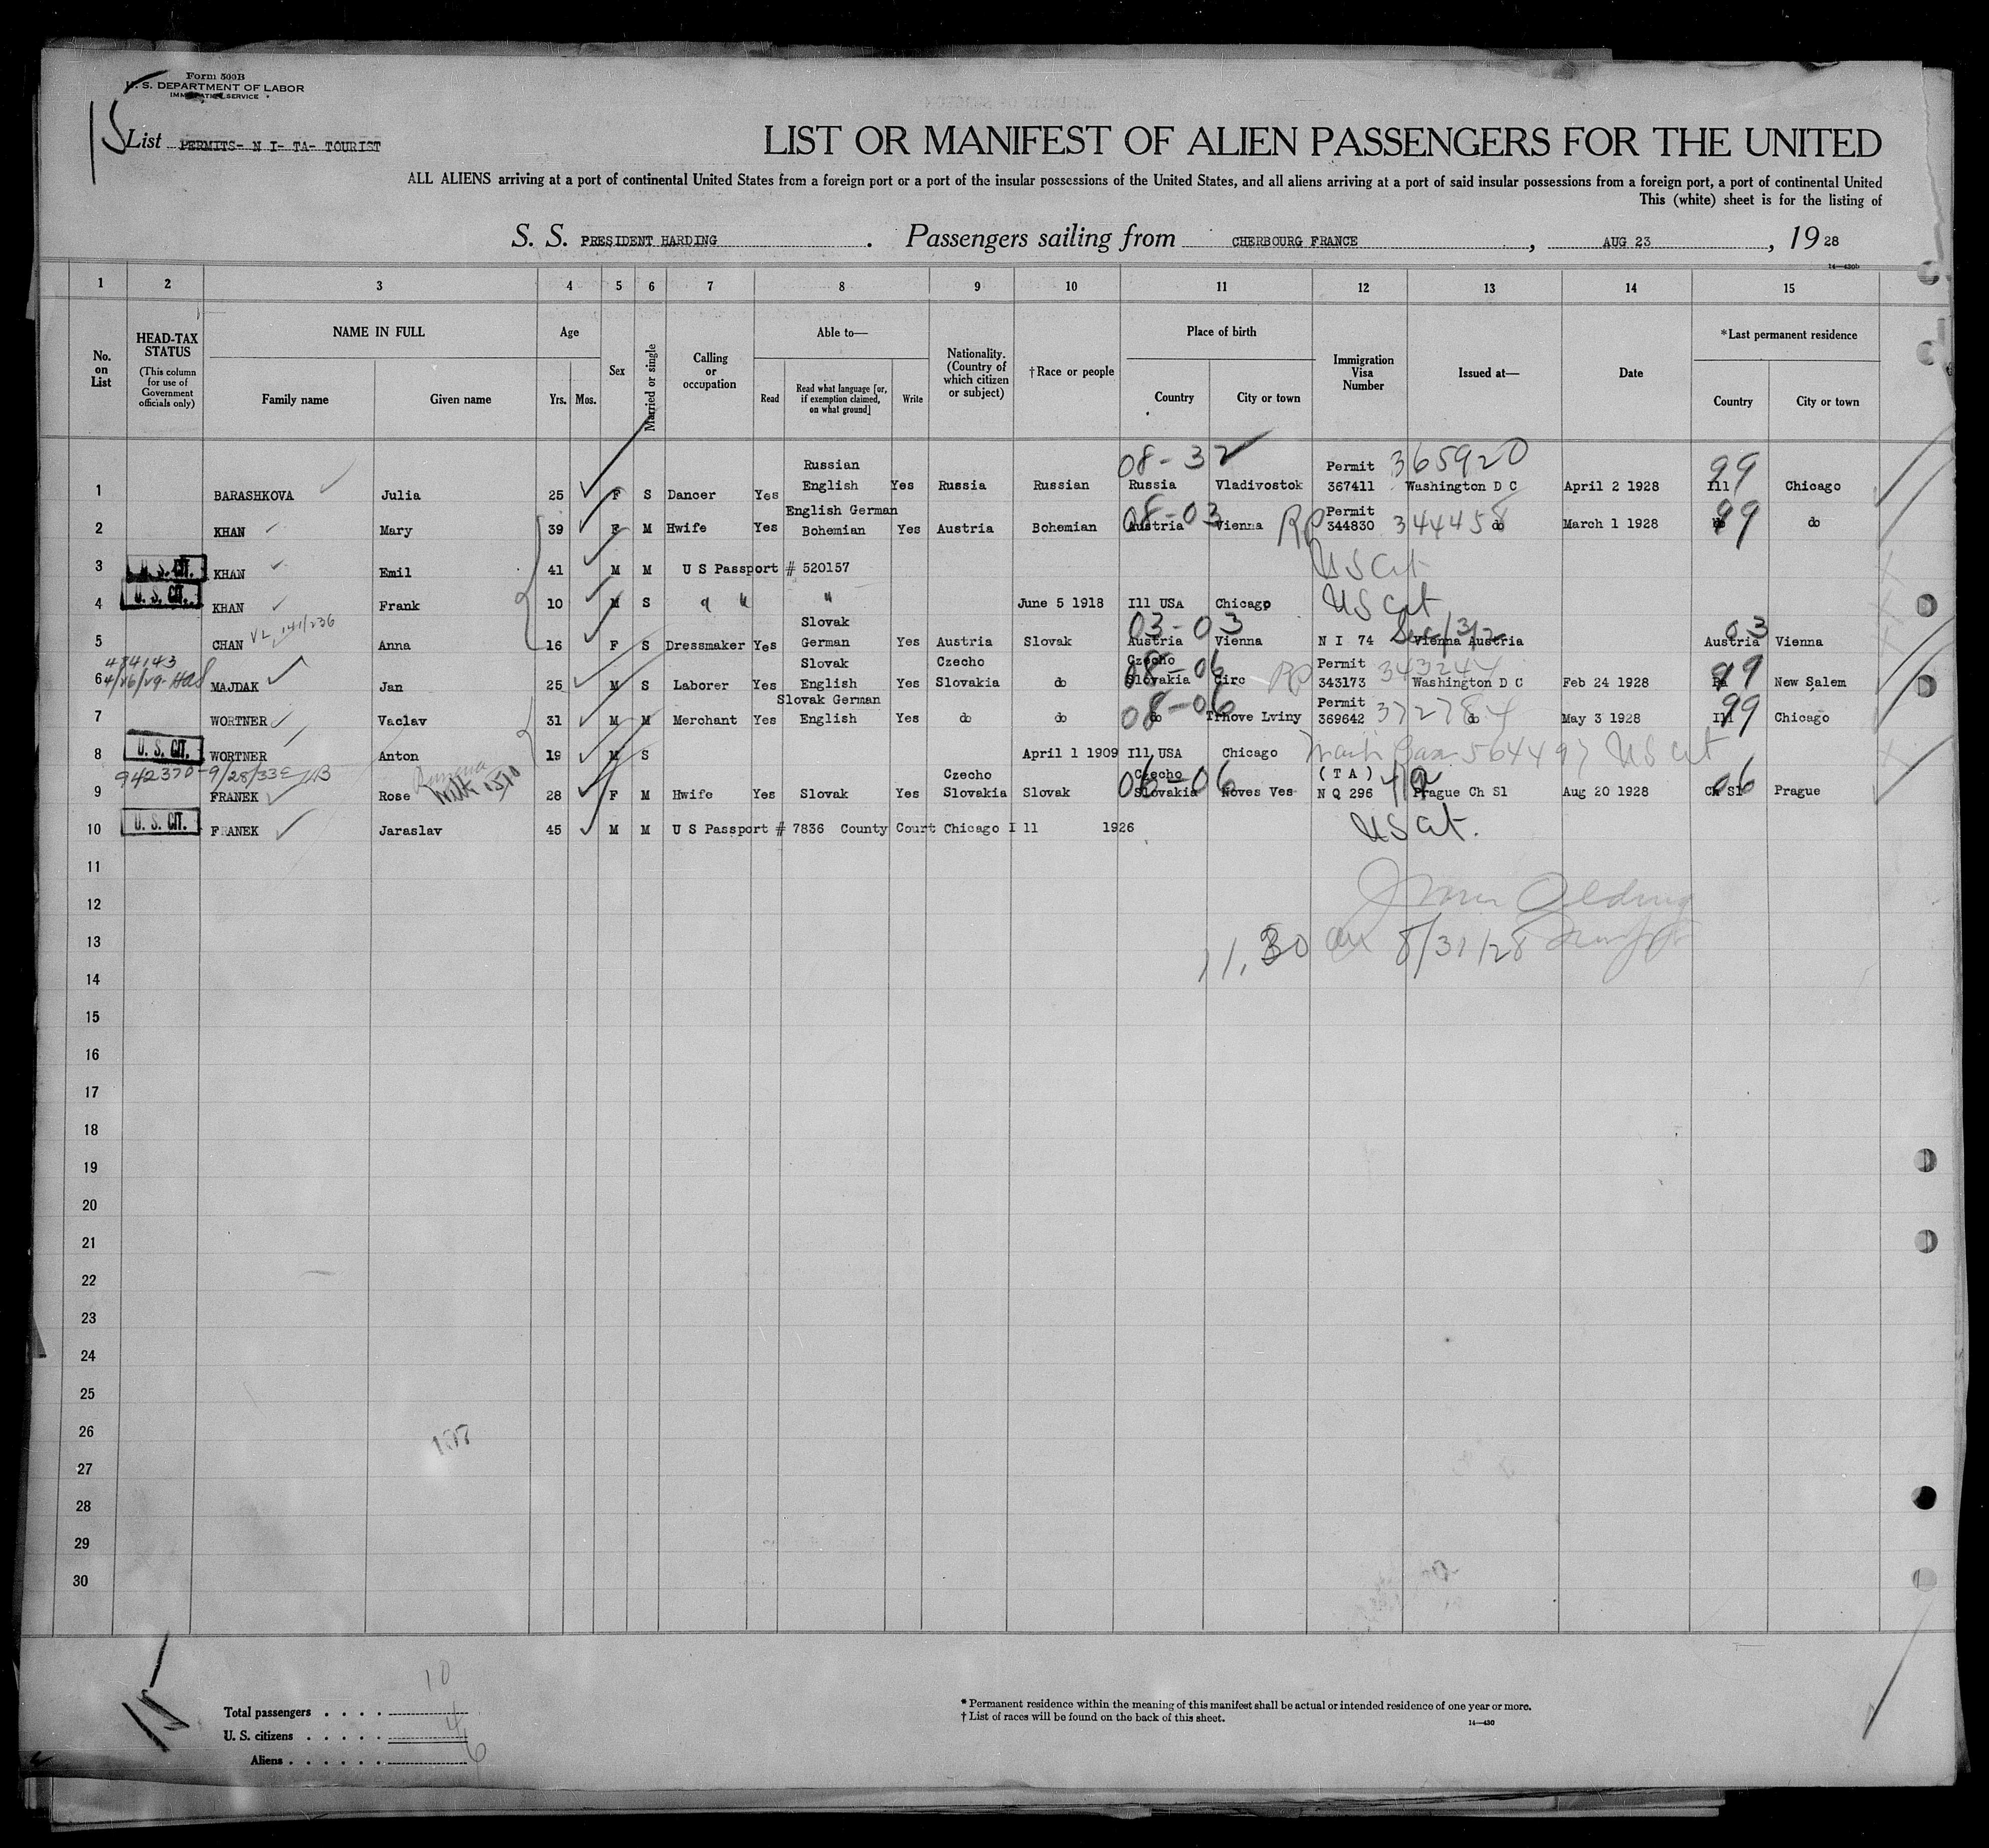 Form 500B
U. S. DEPARTMENT OF LABOR
IMMIGRATION SERVICE
15
List PERMITS- N I- TA- TOURIST
LIST OR MANIFEST OF ALIEN PASSENGERS FOR THE UNITED
ALL ALIENS arriving at a port of continental United States from a foreign port or a port of the insular possessions of the United States, and all aliens arriving at a port of said insular possessions from a foreign port, a port of continental United
This (white) sheet is for the listing of
S. S. PRESIDENT HARDING . Passengers sailing from CHERBOURG FRANCE , AUG 23 , 19 28
14—430b
1 2 3 4 5 6 7 8 9 10 11 12 13 14 15
No. on List
HEAD-TAX STATUS
(This column for use of Government officials only)
NAME IN FULL
Family name Given name
Age
Yrs. Mos.
Sex
Married or single
Calling or occupation
Able to—
Read Read what language [or, if exemption claimed, on what ground] Write
Nationality. (Country of which citizen or subject)
†Race or people
Place of birth
Country City or town
Immigration Visa Number
Issued at—
Date
*Last permanent residence
Country City or town
Russian 08-32 Permit 365920 99
1 BARASHKOVA Julia 25 F S Dancer Yes English Yes Russia Russian Russia Vladivostok 367411 Washington D C April 2 1928 Ill Chicago
English German 08-03 Permit
2 KHAN Mary 39 F M Hwife Yes Bohemian Yes Austria Bohemian Austria Vienna RP 344830 344458 do March 1 1928 do 99 do
3 U. S. CIT. KHAN Emil 41 M M U S Passport # 520157 US Cit
4 U. S. CIT. KHAN Frank 10 M S " " " June 5 1918 Ill USA Chicago US Cit
VL 141/236 Slovak 03-03 03
5 CHAN Anna 16 F S Dressmaker Yes German Yes Austria Slovak Austria Vienna N I 74 Vienna Austria Austria Vienna
484143 Slovak Czecho Czecho 08-06 Permit 343244 99
6 4/26/29 MAJDAK Jan 25 M S Laborer Yes English Yes Slovakia do Slovakia Circ RP 343173 Washington D C Feb 24 1928 Pa New Salem
Slovak German 08-06 Permit 372784 99
7 WORTNER Vaclav 31 M M Merchant Yes English Yes do do do Trhove Lviny 369642 do May 3 1928 Ill Chicago
8 U. S. CIT. WORTNER Anton 19 M S April 1 1909 Ill USA Chicago 564497 US Cit
942370-9/28/33 Czecho Czecho 06-06 (TA) 06
9 FRANEK Rose 28 F M Hwife Yes Slovak Yes Slovakia Slovak Slovakia Noves Ves N Q 296 Prague Ch Sl Aug 20 1928 Ch Sl Prague
10 U. S. CIT. FRANEK Jaraslav 45 M M U S Passport # 7836 County Court Chicago I ll 1926 US Cit.
11
12
13 11,30 am 8/31/28
14
15
16
17
18
19
20
21
22
23
24
25
26
27
28
29
30
15
Total passengers . . . . 10
U. S. citizens . . . . . 4
Aliens . . . . . . 6
* Permanent residence within the meaning of this manifest shall be actual or intended residence of one year or more.
† List of races will be found on the back of this sheet.
14—430